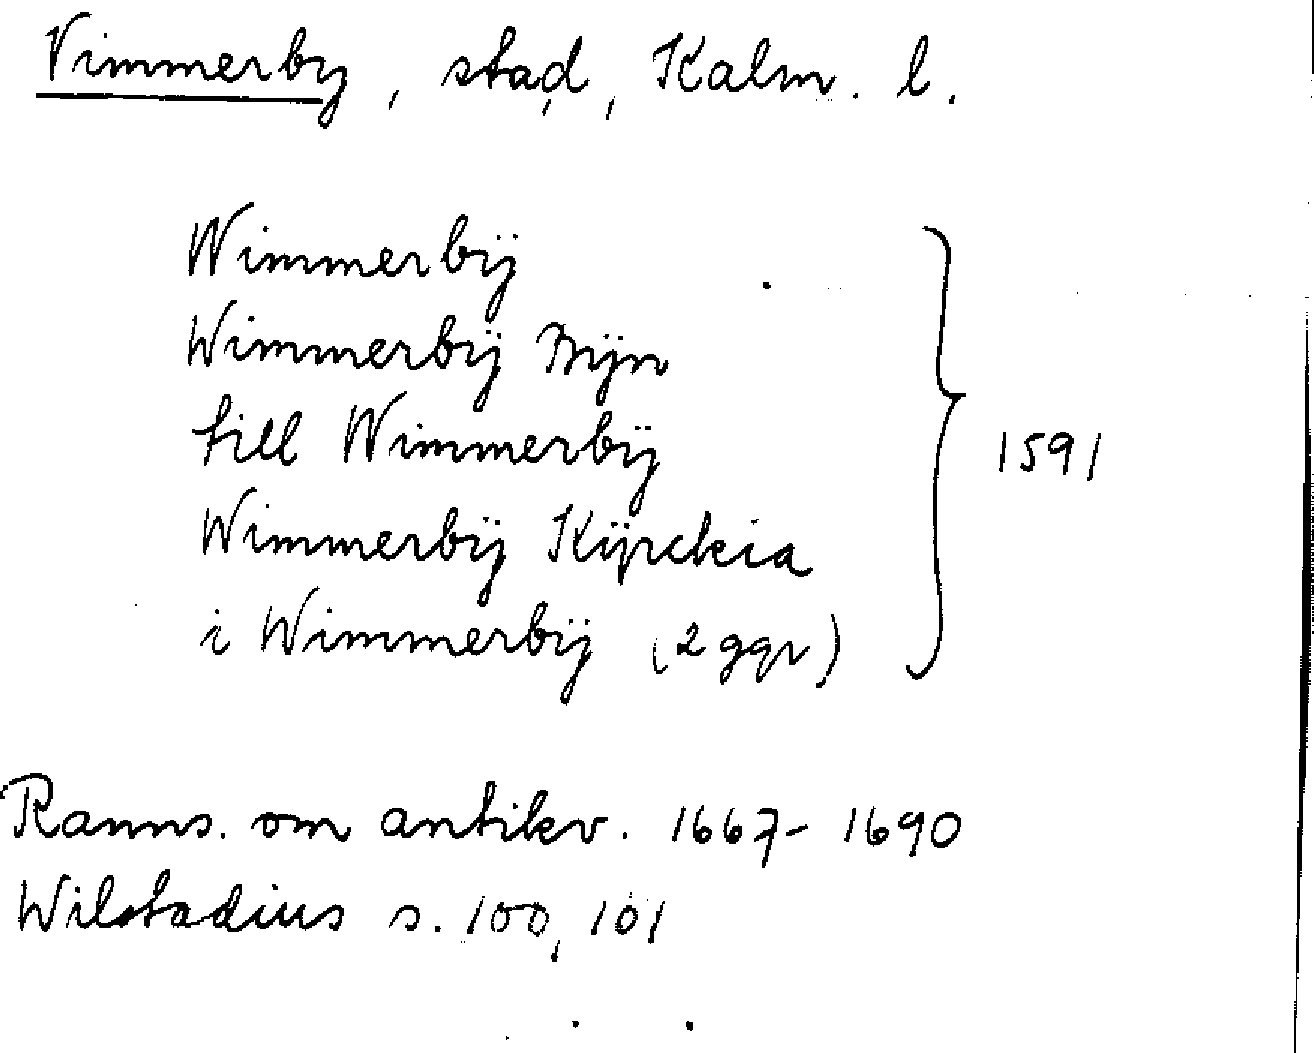 Vimmerby, stad, Kalm. l.
Wimmerbÿ
Wimmerbÿ Bÿn
till Wimmerbÿ
Wimmerbÿ Kÿrckia
i Wimmerbÿ (2 ggr)
1591
Ranns. om antikv. 1667-1690
Wilstadius s. 100, 101